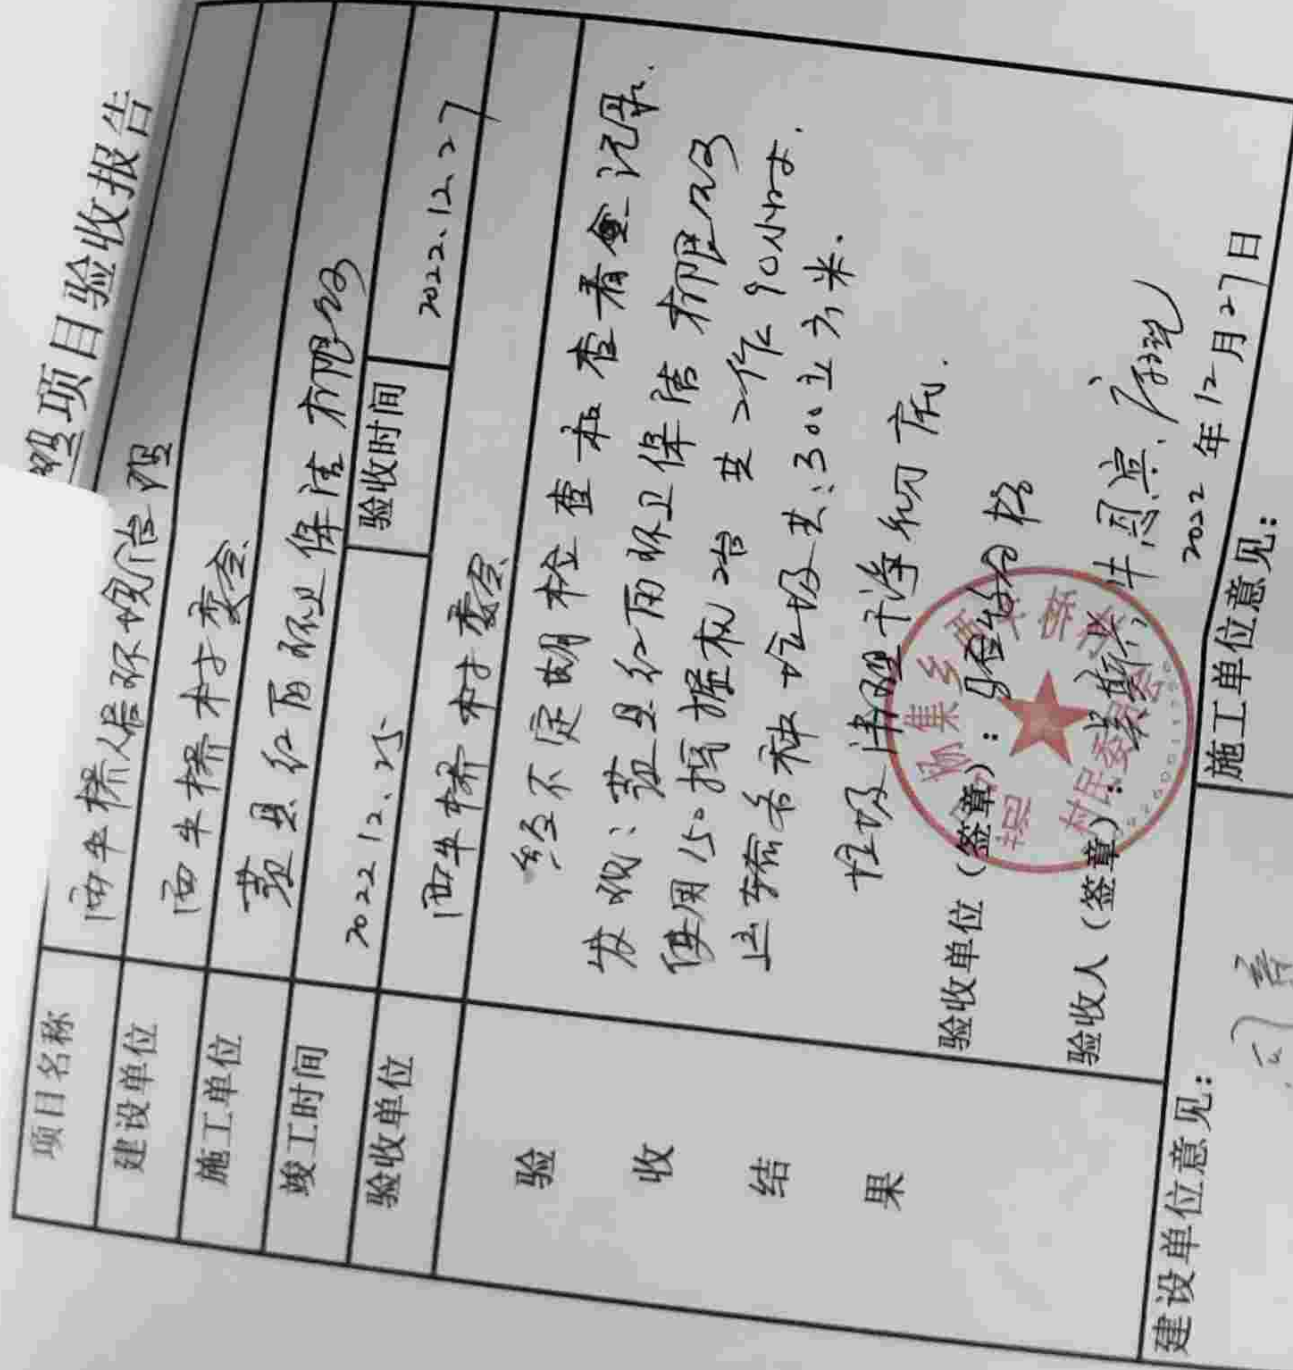 理项目验收报告
项目名称 西牛桥人居环境治理
建设单位 西牛桥村委会
施工单位 范县红雨环卫保洁有限公司
竣工时间 2022.12.25 验收时间 2022.12.27
验收单位 西牛桥村委会
验收结果
经不定期检查和查看记录.
发现：范县红雨环卫保洁有限公司
使用150挖掘机2台 共工作90小时.
运输各种垃圾共:300立方米.
垃圾清理干净彻底.
验收单位（签章）： 验收合格
验收人（签章）： 牛恩宾.
2022年12月27日
建设单位意见：
施工单位意见：
同意
集乡西牛桥
村民委员会